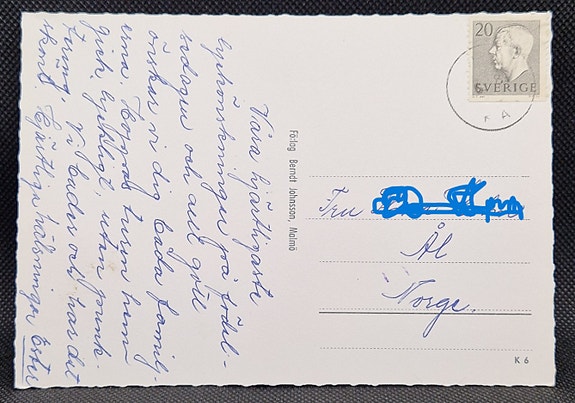 Våra hjärtligaste
lyckönskningar på födel-
sedagen och allt gott
önskar vi dig båda familj-
erna. Hoppas turen hem
gick lyckligt, utan punk-
tering. Vi badar och har det
skönt. Hjärtliga hälsningar Ester
Förlag Berndt Johnsson, Malmö
20
SVERIGE
Fru
Ål
Norge.
K 6